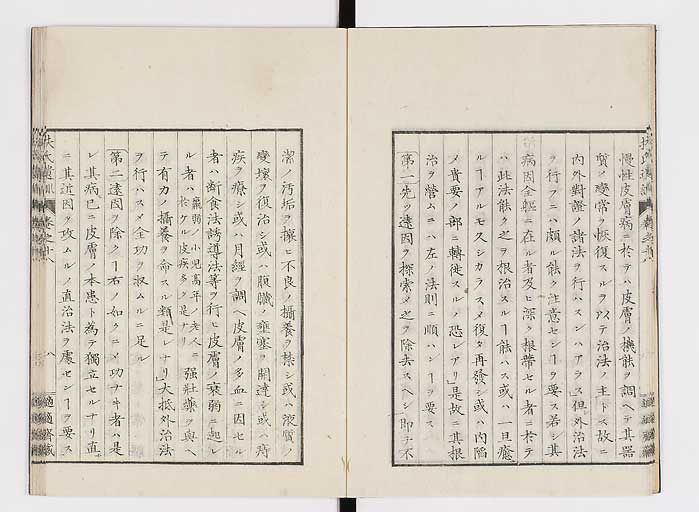 慢性皮膚病ニ於テハ皮膚ノ機能ヲ調ヘテ其器
質ノ變常ヲ恢復スルヲ以テ治法ノ主トス故ニ
内外對證ノ諸法ヲ行ハスンハアラス但外治法
ヲ行フニハ頗ル能ク注意セシヿヲ要ス若シ其
病因全軀ニ在ル者及ヒ深ク根帶セル者ニ於テ
ハ此法能ク之ヲ根治スルヿ能ハス或ハ一旦癒
ルヿアルモ久シカラスメ復タ再發シ或ハ内陷
メ貴要ノ部ニ轉徙スルノ恐レアリ」是故ニ其根
治ヲ營ムニハ左ノ法則ニ順ハンヿヲ要ス
第一先ツ遠因ヲ探索メ之ヲ除去スヘシ即チ不
潔ノ汚垢ヲ擦ヒ不良ノ攝養ヲ禁シ或ハ液質ノ
變壞ヲ復治シ或ハ腹臟ノ壅塞ヲ開達シ或ハ痔
疾ヲ療シ或ハ月經ヲ調ヘ皮膚ノ多血ニ因セル
者ハ断食法誘導法等ヲ行ヒ皮膚ノ衰弱ニ起レ
ル者ハ羸弱ノ小児高年ノ老人ニ於ケル皮疾多ク是ナリ強壯藥ヲ與ヘ
テ有力ノ攝養ヲ命スル類是レナリ」大抵外治法
ヲ行ハスメ全功ヲ収ムルニ足ル
第二遠因ヲ除クヿ右ノ如クニメ功ナキ者ハ是
レ其病已ニ皮膚ノ本患ト為テ獨立セルナリ直
ニ其近因ヲ攻ムルノ直治法ヲ處センヿヲ要ス
扶氏遺訓
八
適適齋藏